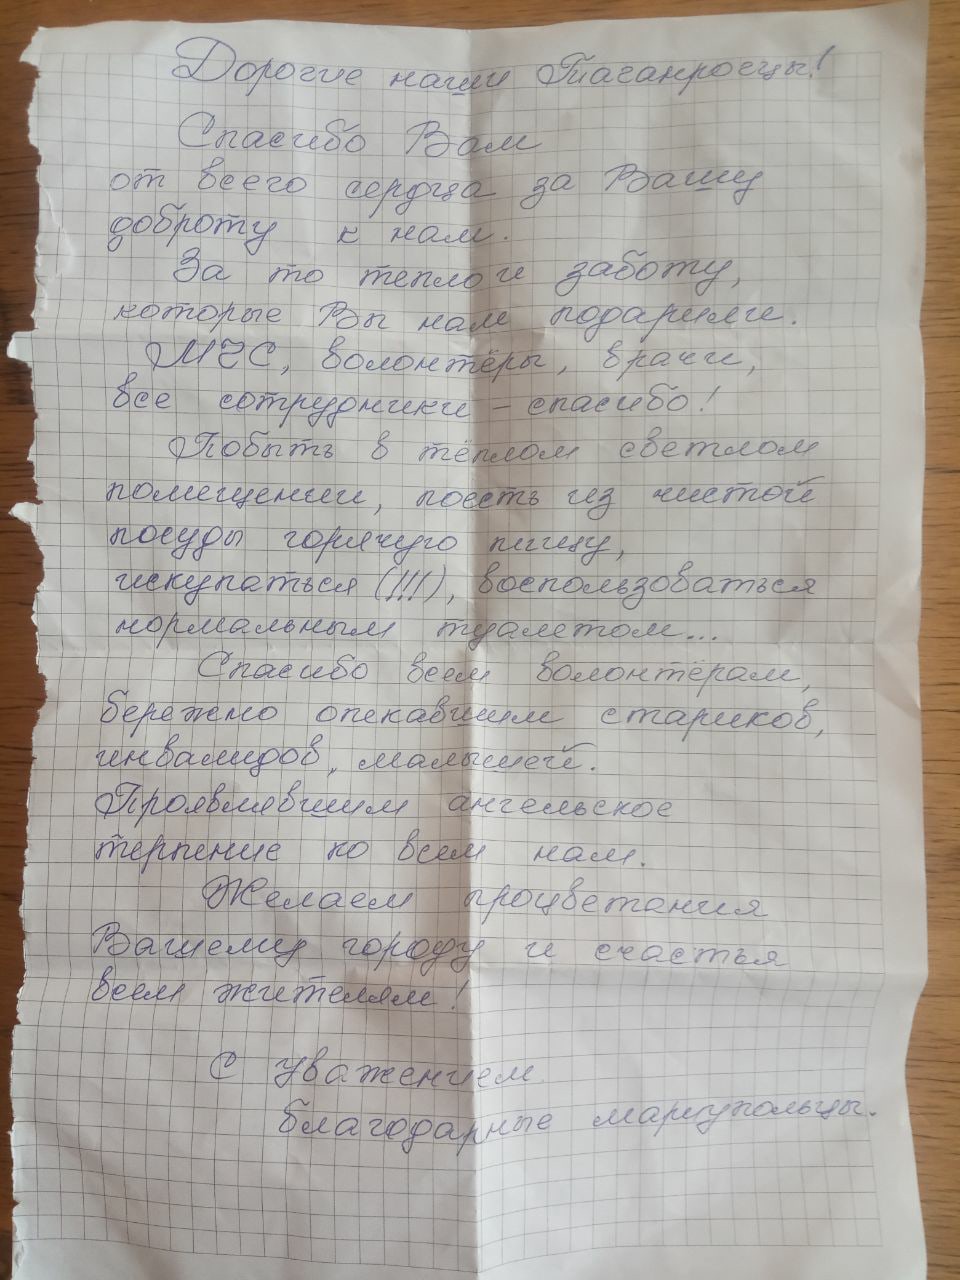 Дорогие наши Таганрогцы!
Спасибо Вам
от всего сердца за Вашу
доброту к нам.
За то тепло и заботу,
которые Вы нам подарили.
МЧС, волонтёры, врачи,
все сотрудники – спасибо!
Побыть в тёплом светлом
помещении, поесть из чистой
посуды горячую пищу,
искупаться (!!!), воспользоваться
нормальным туалетом...
Спасибо всем волонтёрам,
бережно опекавшим стариков,
инвалидов, малышей.
Проявлявшим ангельское
терпение ко всем нам.
Желаем процветания
Вашему городу и счастья
всем жителям!
С уважением
благодарные мариупольцы.